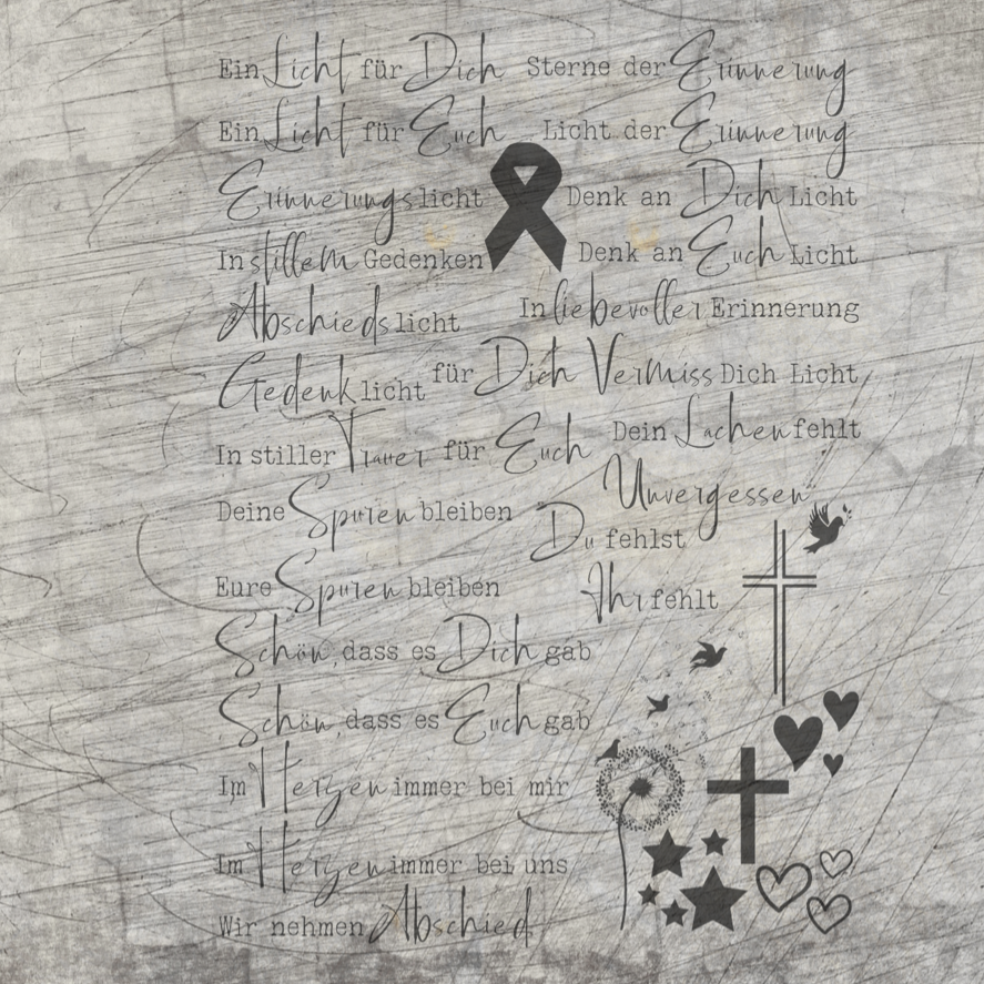 Ein Licht für Dich Sterne der Erinnerung
Ein Licht für Euch Licht der Erinnerung
Erinnerungslicht Denk an Dich Licht
In stillem Gedenken Denk an Euch Licht
Abschiedslicht In liebevoller Erinnerung
Gedenklicht für Dich Vermiss Dich Licht
In stiller Trauer für Euch Dein Lachen fehlt
Unvergessen
Deine Spuren bleiben Du fehlst
Eure Spuren bleiben Ihr fehlt
Schön, dass es Dich gab
Schön, dass es Euch gab
Im Herzen immer bei mir
Im Herzen immer bei uns
Wir nehmen Abschied